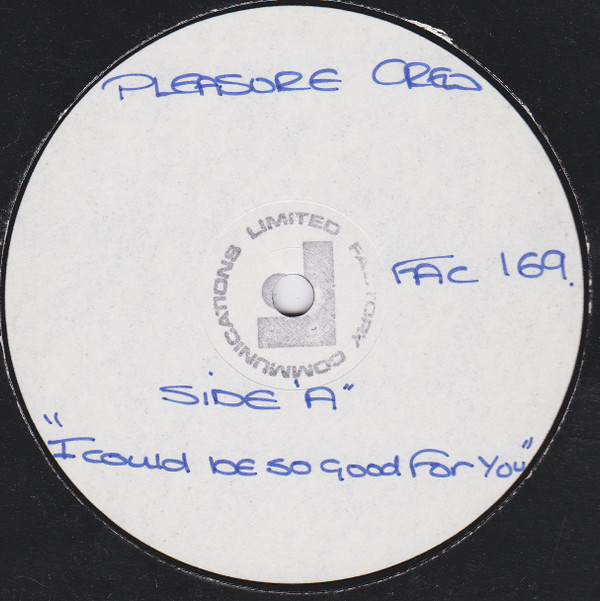 PLEASURE CREW
FACTORY COMMUNICATIONS LIMITED
FAC 169.
SIDE 'A"
"I could be so good for you"